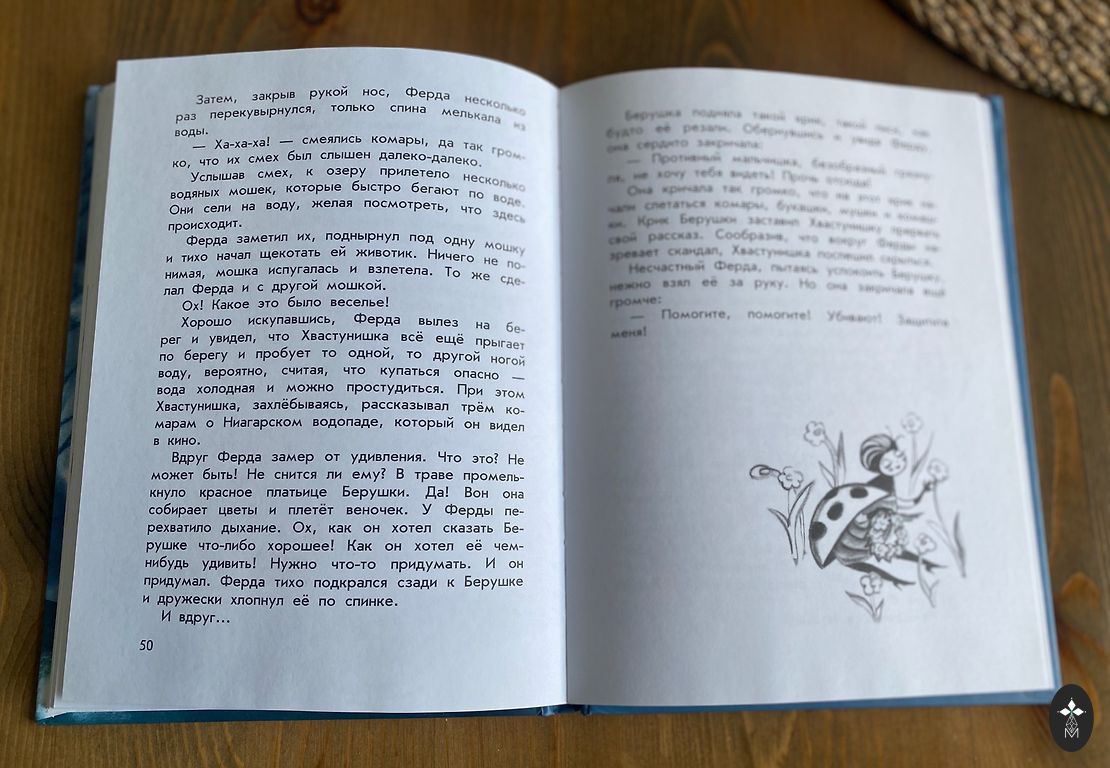 Затем, закрыв рукой нос, Ферда несколько
раз перекувырнулся, только спина мелькала из
воды.
— Ха-ха-ха! — смеялись комары, да так гром-
ко, что их смех был слышен далеко-далеко.
Услышав смех, к озеру прилетело несколько
водяных мошек, которые быстро бегают по воде.
Они сели на воду, желая посмотреть, что здесь
происходит.
Ферда заметил их, поднырнул под одну мошку
и тихо начал щекотать ей животик. Ничего не по-
нимая, мошка испугалась и взлетела. То же сде-
лал Ферда и с другой мошкой.
Ох! Какое это было веселье!
Хорошо искупавшись, Ферда вылез на бе-
рег и увидел, что Хвастунишка всё ещё прыгает
по берегу и пробует то одной, то другой ногой
воду, вероятно, считая, что купаться опасно —
вода холодная и можно простудиться. При этом
Хвастунишка, захлёбываясь, рассказывал трём ко-
марам о Ниагарском водопаде, который он видел
в кино.
Вдруг Ферда замер от удивления. Что это? Не
может быть! Не снится ли ему? В траве промель-
кнуло красное платьице Берушки. Да! Вон она
собирает цветы и плетёт веночек. У Ферды пе-
рехватило дыхание. Ох, как он хотел сказать Бе-
рушке что-либо хорошее! Как он хотел её чем-
нибудь удивить! Нужно что-то придумать. И он
придумал. Ферда тихо подкрался сзади к Берушке
и дружески хлопнул её по спинке.
И вдруг...
50
Берушка подняла такой крик, такой писк, как
будто её резали. Обернувшись и увидя Ферду,
она сердито закричала:
— Противный мальчишка, безобразный
не хочу тебя видеть! Прочь отсюда!
Она кричала так громко, что на этот крик на-
чали слетаться комары, букашки, мушки и
Крик Берушки заставил Хвастунишку прервать
свой рассказ. Сообразив, что вокруг Ферды на-
зревает скандал, Хвастунишка поспешил скрыться.
Несчастный Ферда, пытаясь успокоить Берушку,
нежно взял её за руку. Но она закричала ещё
громче:
— Помогите, помогите! Убивают! Защитите
меня!
M